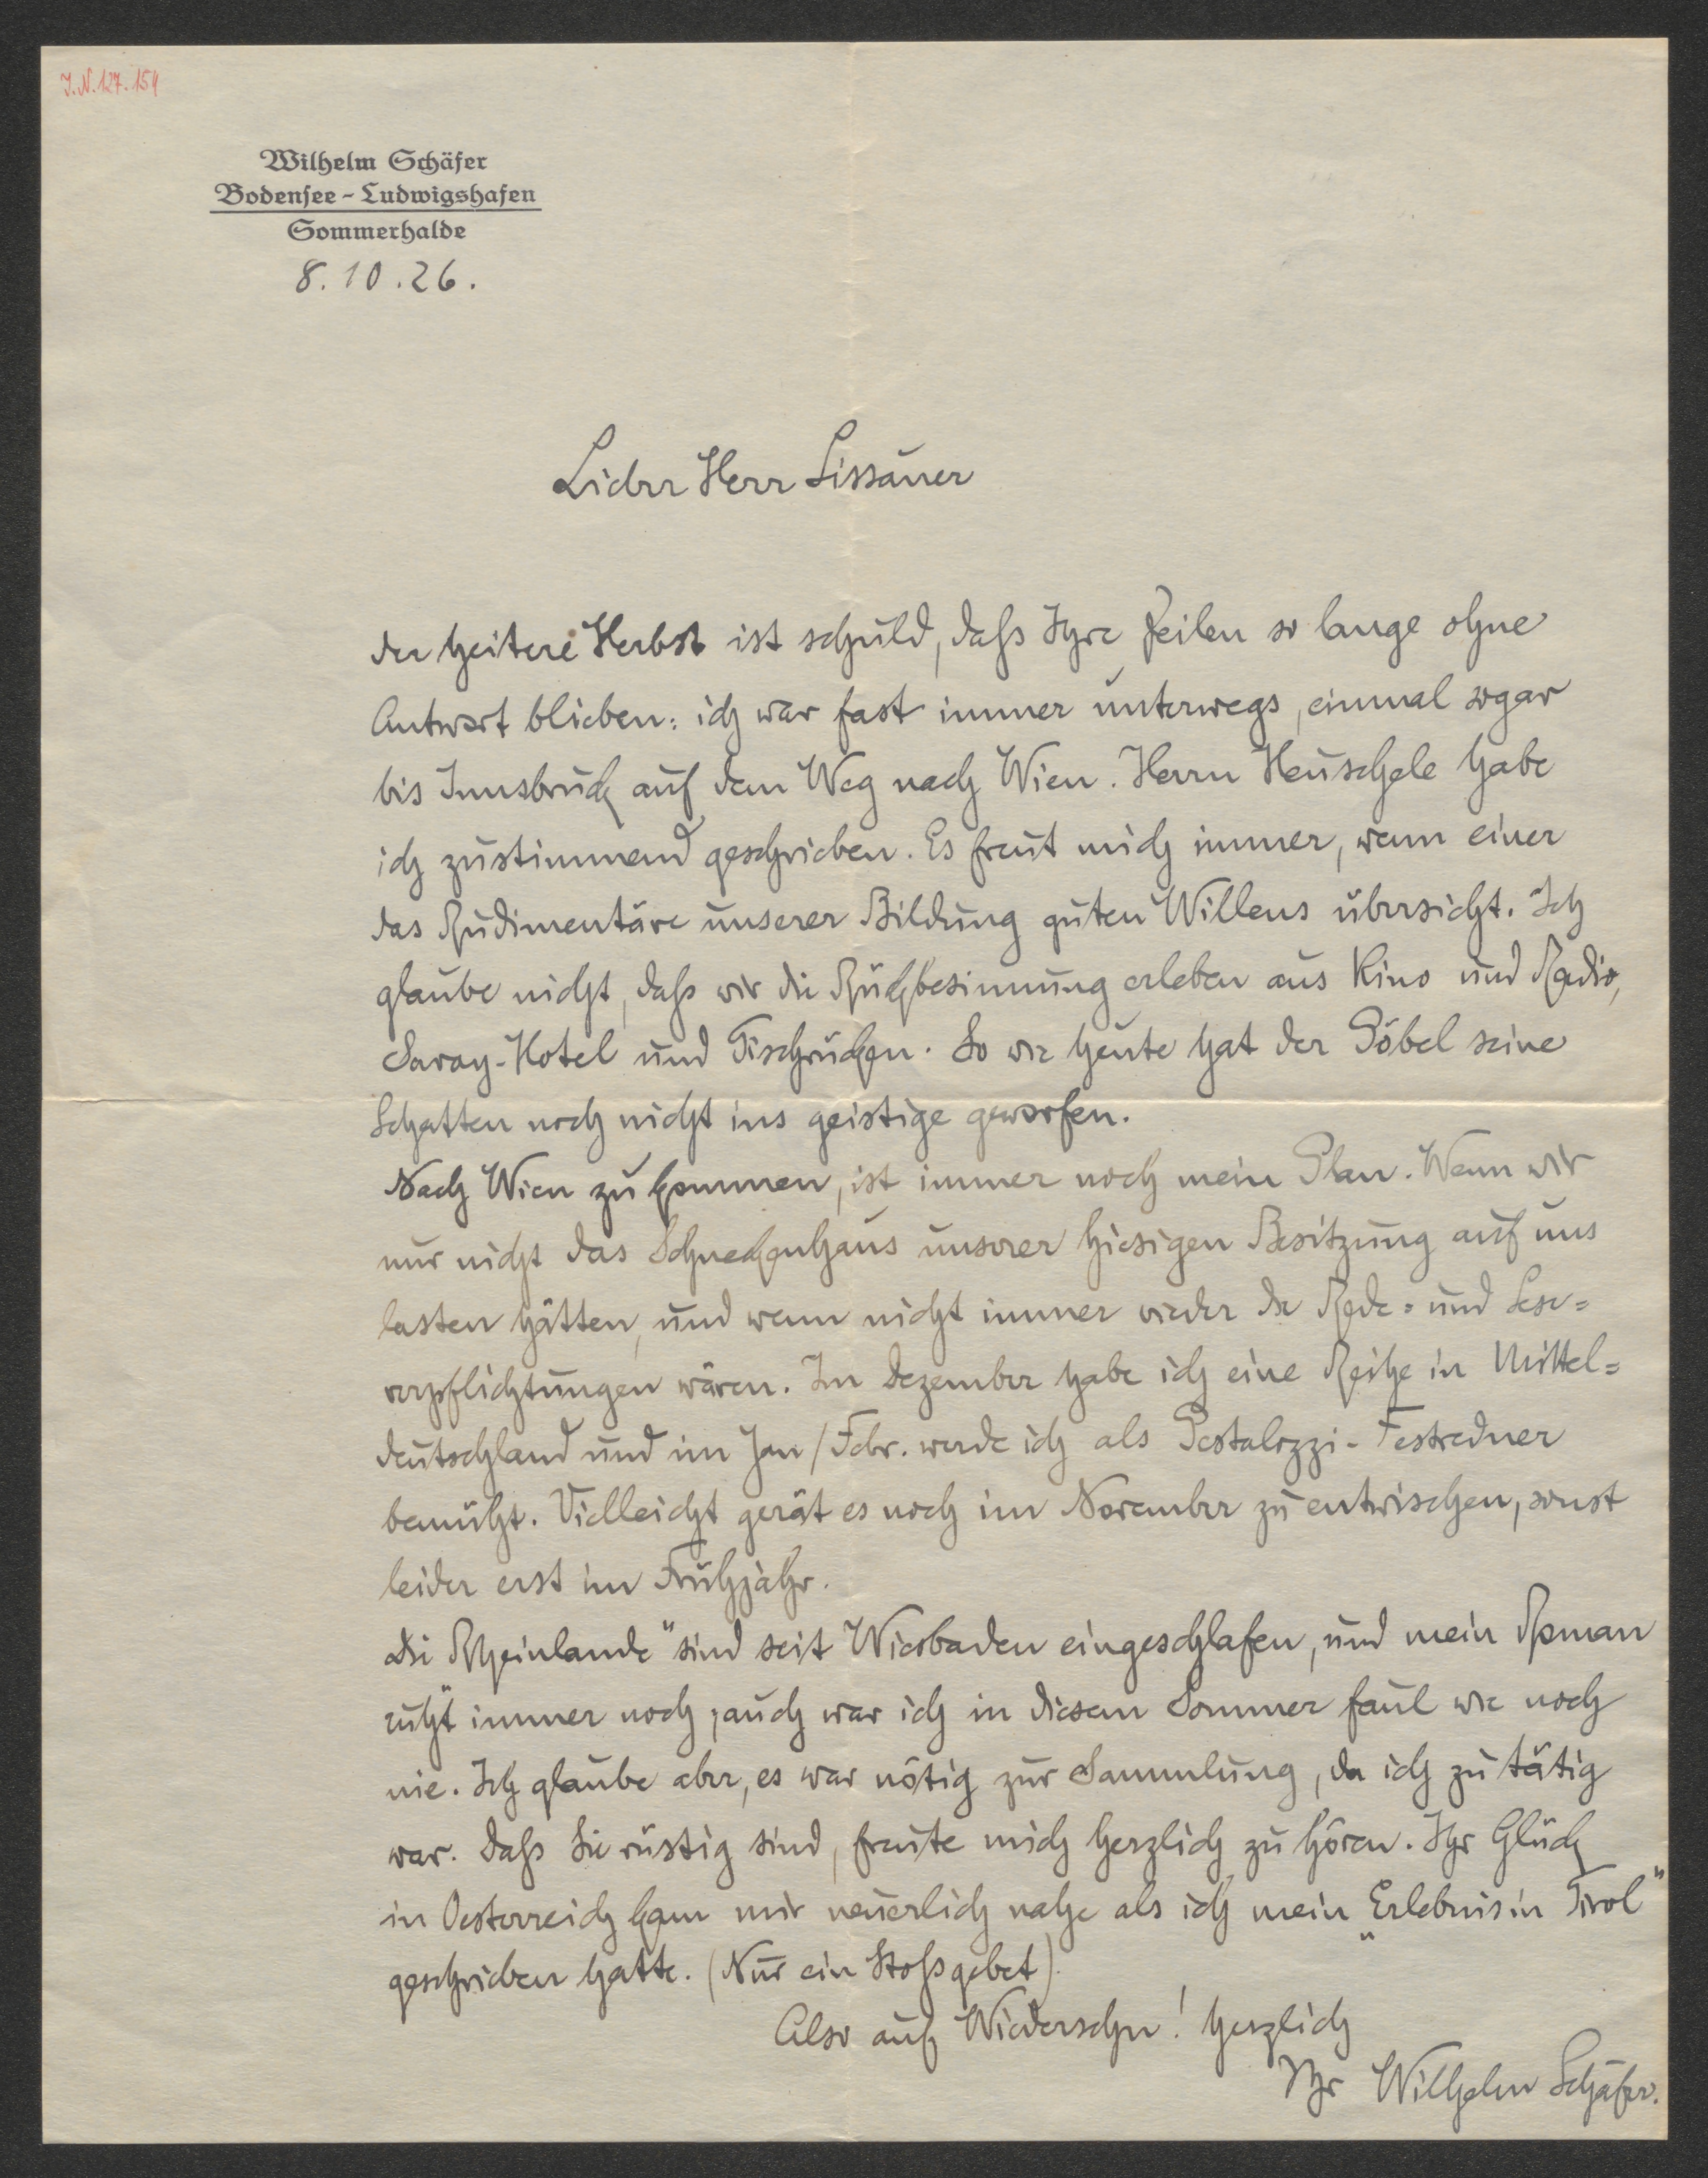 J.N.127.154
Wilhelm Schäfer
Bodensee-Ludwigshafen
Sommerhalde
8.10.26.
Lieber Herr Lissauer
der heitere Herbst ist schuld, dass Ihre Zeilen so lange ohne
Antwort blieben: ich war fast immer unterwegs, einmal sogar
bis Innsbruck auf dem Weg nach Wien. Herrn Heuschele habe
ich zustimmend geschrieben. Es freut mich immer, wenn einer
das Rudimentäre unserer Bildung guten Willens übersieht. Ich
glaube nicht, dass wir die Rückbesinnung erleben aus Kino und Radio,
Savoy-Hotel und Fischrücken. So wie heute hat der Pöbel seine
Schatten noch nicht ins geistige geworfen.
Nach Wien zu kommen, ist immer noch mein Plan. Wenn wir
nur nicht das Schneckenhaus unserer hiesigen Besitzung auf uns
lasten hätten, und wenn nicht immer wieder die Rede- und Lese-
verpflichtungen wären. Im Dezember habe ich eine Reihe in Mittel-
deutschland und im Jan/Febr. werde ich als Pestalozzi-Festredner
bemüht. Vielleicht gerät es noch im November zu entwischen, sonst
leider erst im Frühjahr.
Die Rheinlande" sind seit Wiesbaden eingeschlafen, und mein Roman
ruht immer noch; auch war ich in diesem Sommer faul wie noch
nie. Ich glaube aber, es war nötig zur Sammlung, da ich zu tätig
war. Dass Sie rüstig sind, freute mich herzlich zu hören. Ihr Glück
in Oesterreich kam mir neuerlich nahe als ich mein „Erlebnis in Tirol"
geschrieben hatte. (Nur ein Stossgebet)
Also auf Wiedersehn! Herzlich
Ihr Wilhelm Schäfer.